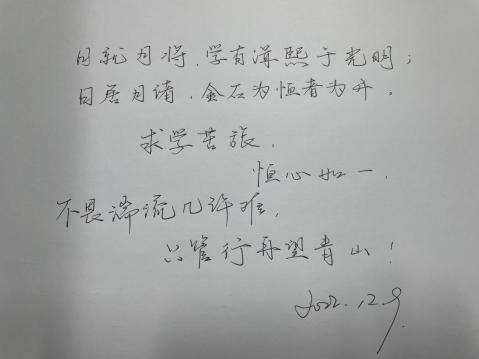 日就月将，学有缉熙于光明；
日居月诸，金石为恒者为开。
求学苦旅，
恒心如一，
不畏湍流几许难，
只管行舟望青山！
2022.12.9